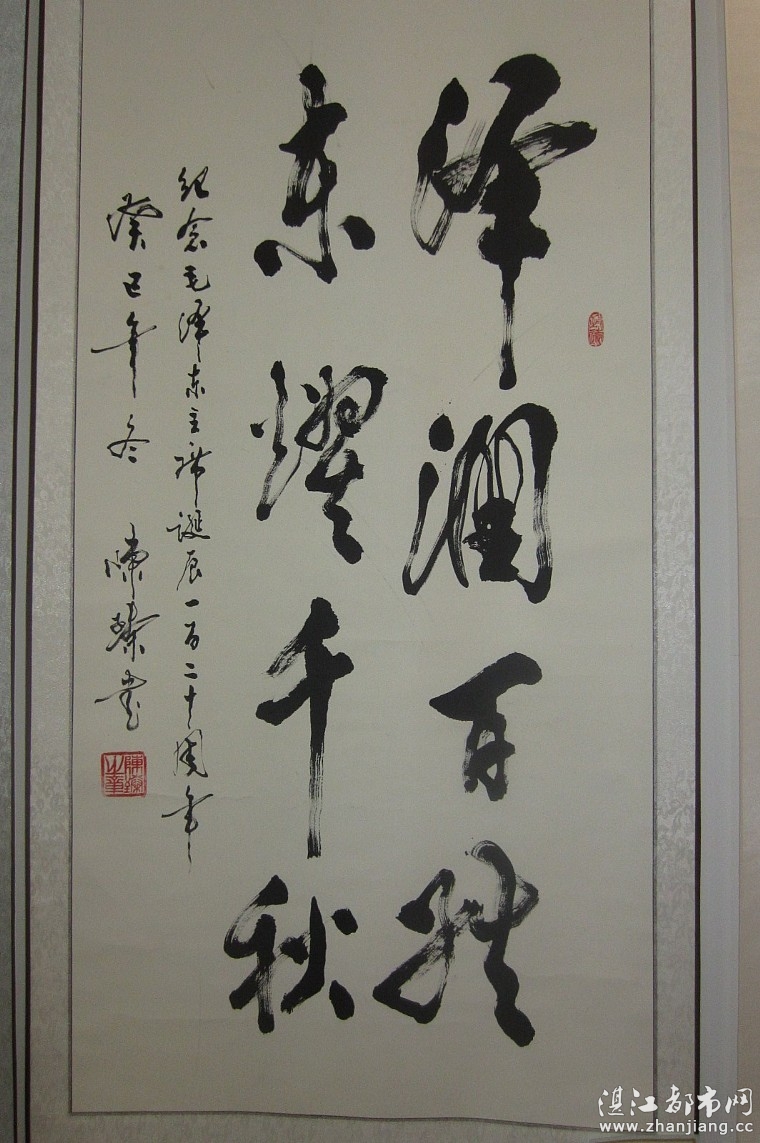 泽润百
东耀千秋
纪念毛泽东主席诞辰一百二十周年
癸巳年冬 陈书
湛江都市网
www.zhanjiang.cc